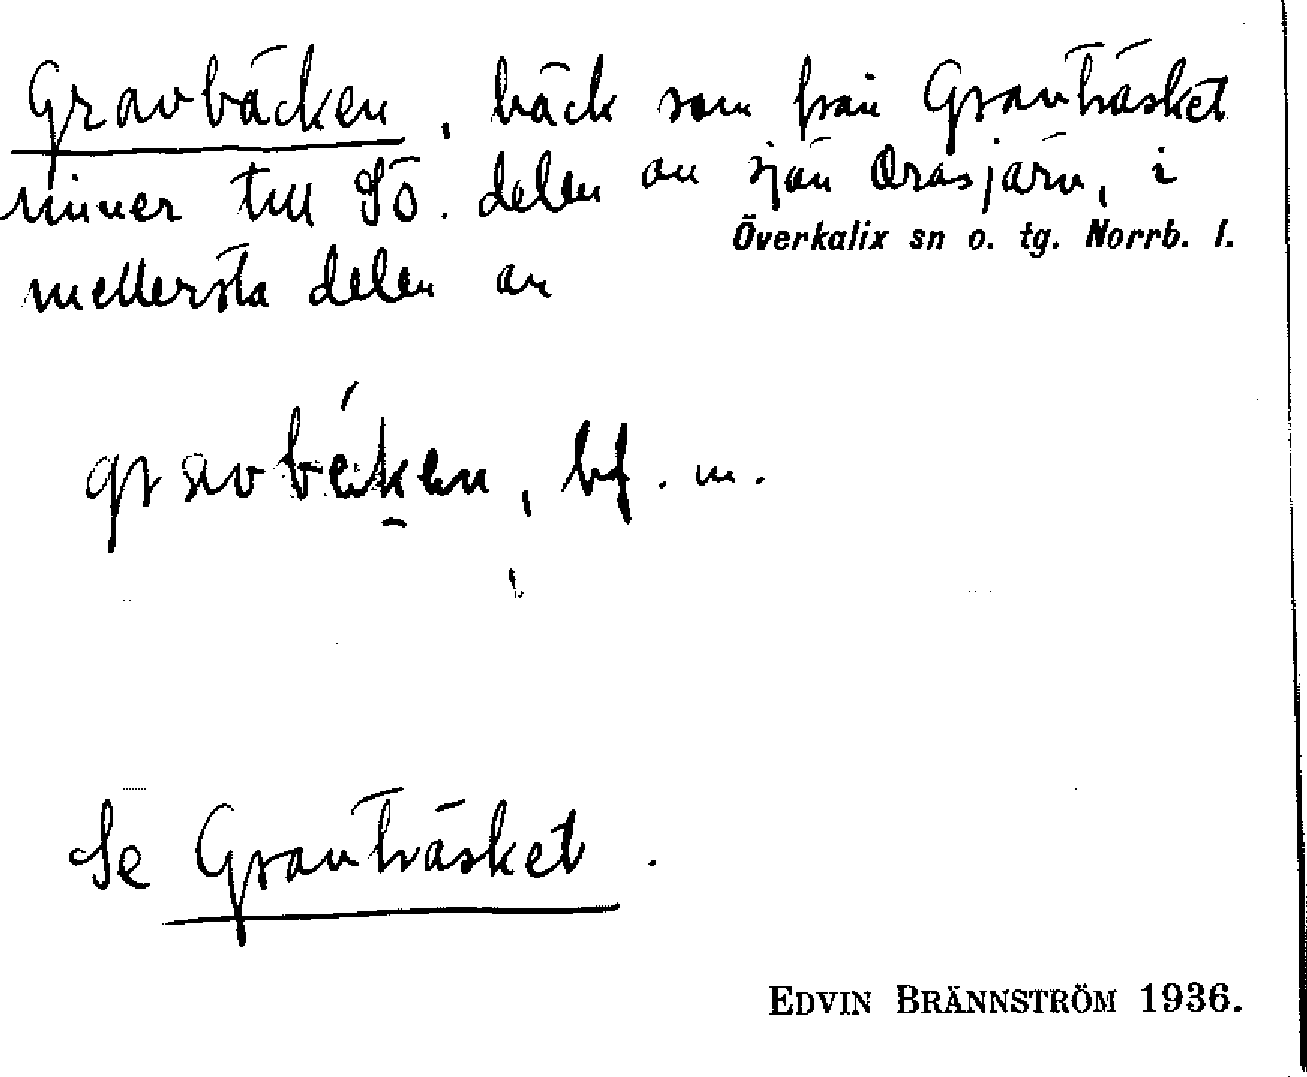 Gravbäcken, bäck som från Gravträsket
rinner till Sö. delen av sjön Orasjärv, i
mellersta delen av Överkalix sn o. tg. Norrb. l.
bf. m.
Se Gravträsket.
EDVIN BRÄNNSTRÖM 1936.